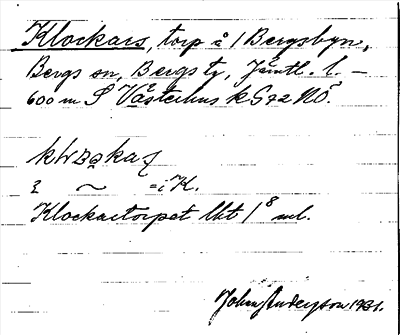 Klockars, torp å 1 Bergsbyn,
Bergs sn, Bergs tg, Jämtl. l. –
600 m S Västerhus k G72 NÖ.
i K.
Klockartorpet lht 1/8 mtl.
John Anderson 1931.